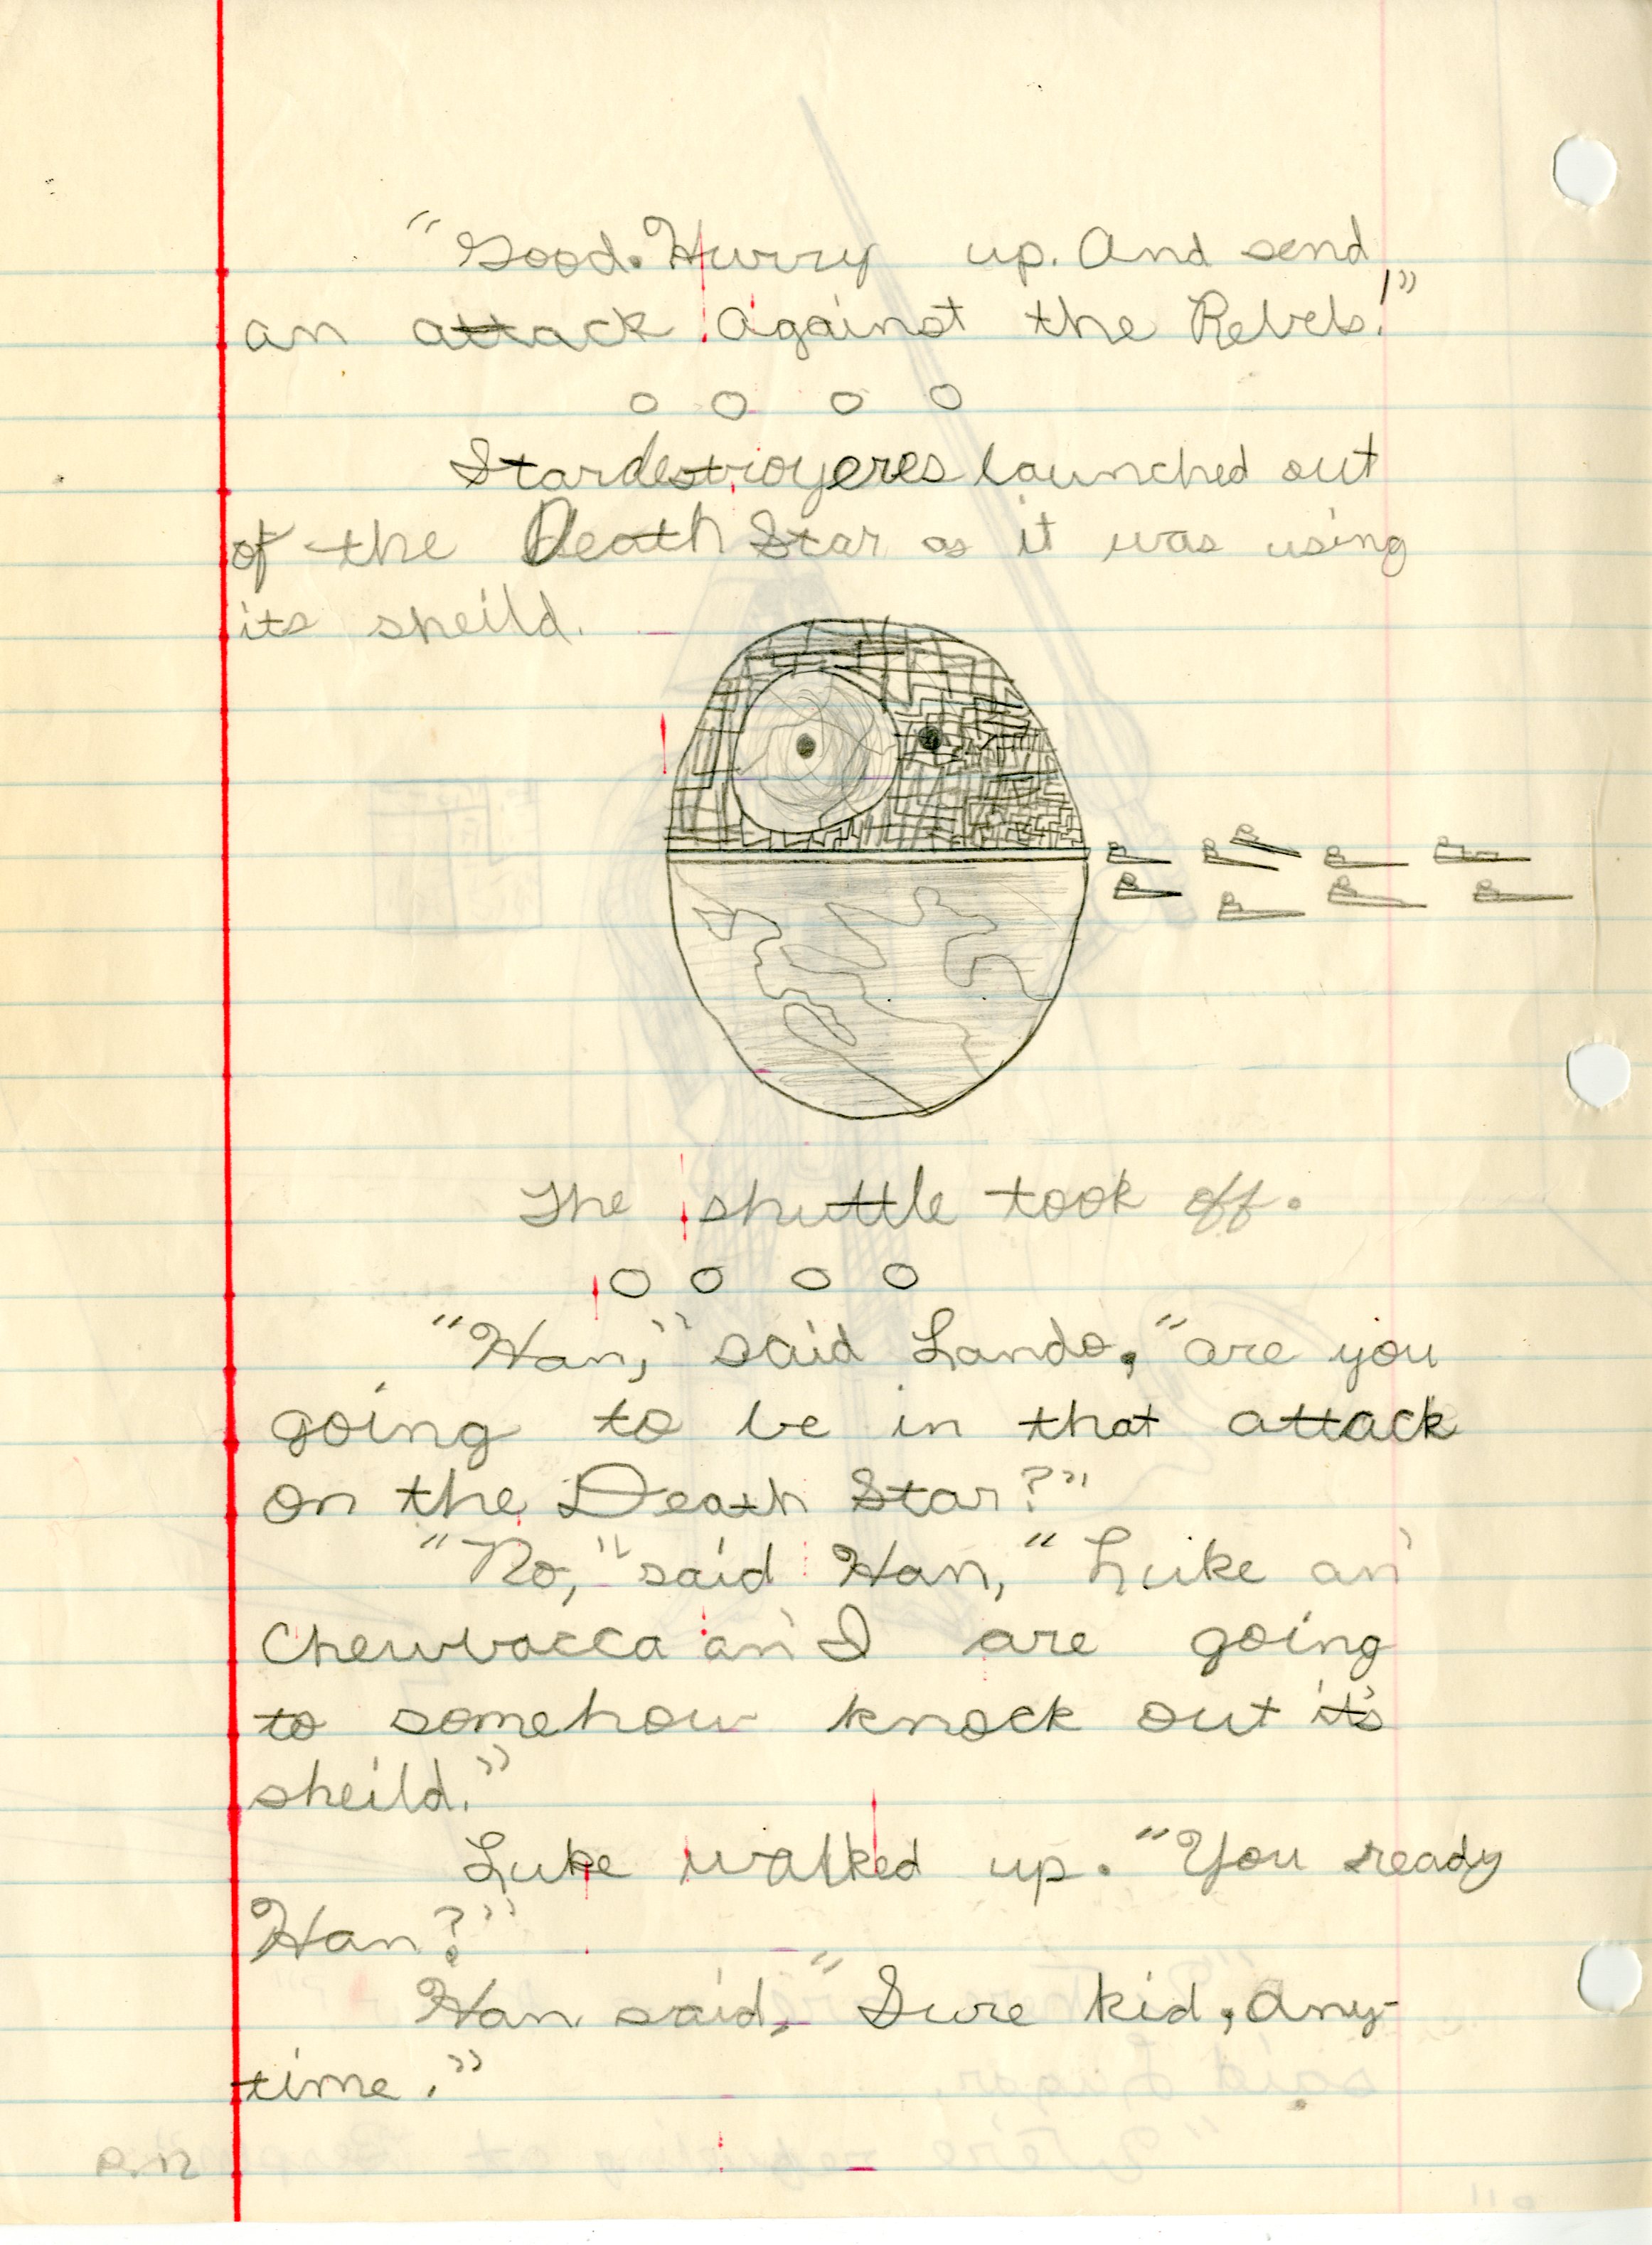 "Good. Hurry up. And send
an attack against the Rebels!"
o o o o
Stardestroyeres launched out
of the Death Star as it was using
its sheild.
The shuttle took off.
o o o o
"Han," said Lando, "are you
going to be in that attack
on the Death Star?"
"No," said Han, "Luke an'
Chewbacca an' I are going
to somehow knock out it's
sheild."
Luke walked up. "You ready
Han?"
Han said, "Sure kid, any-
time."
P. 12